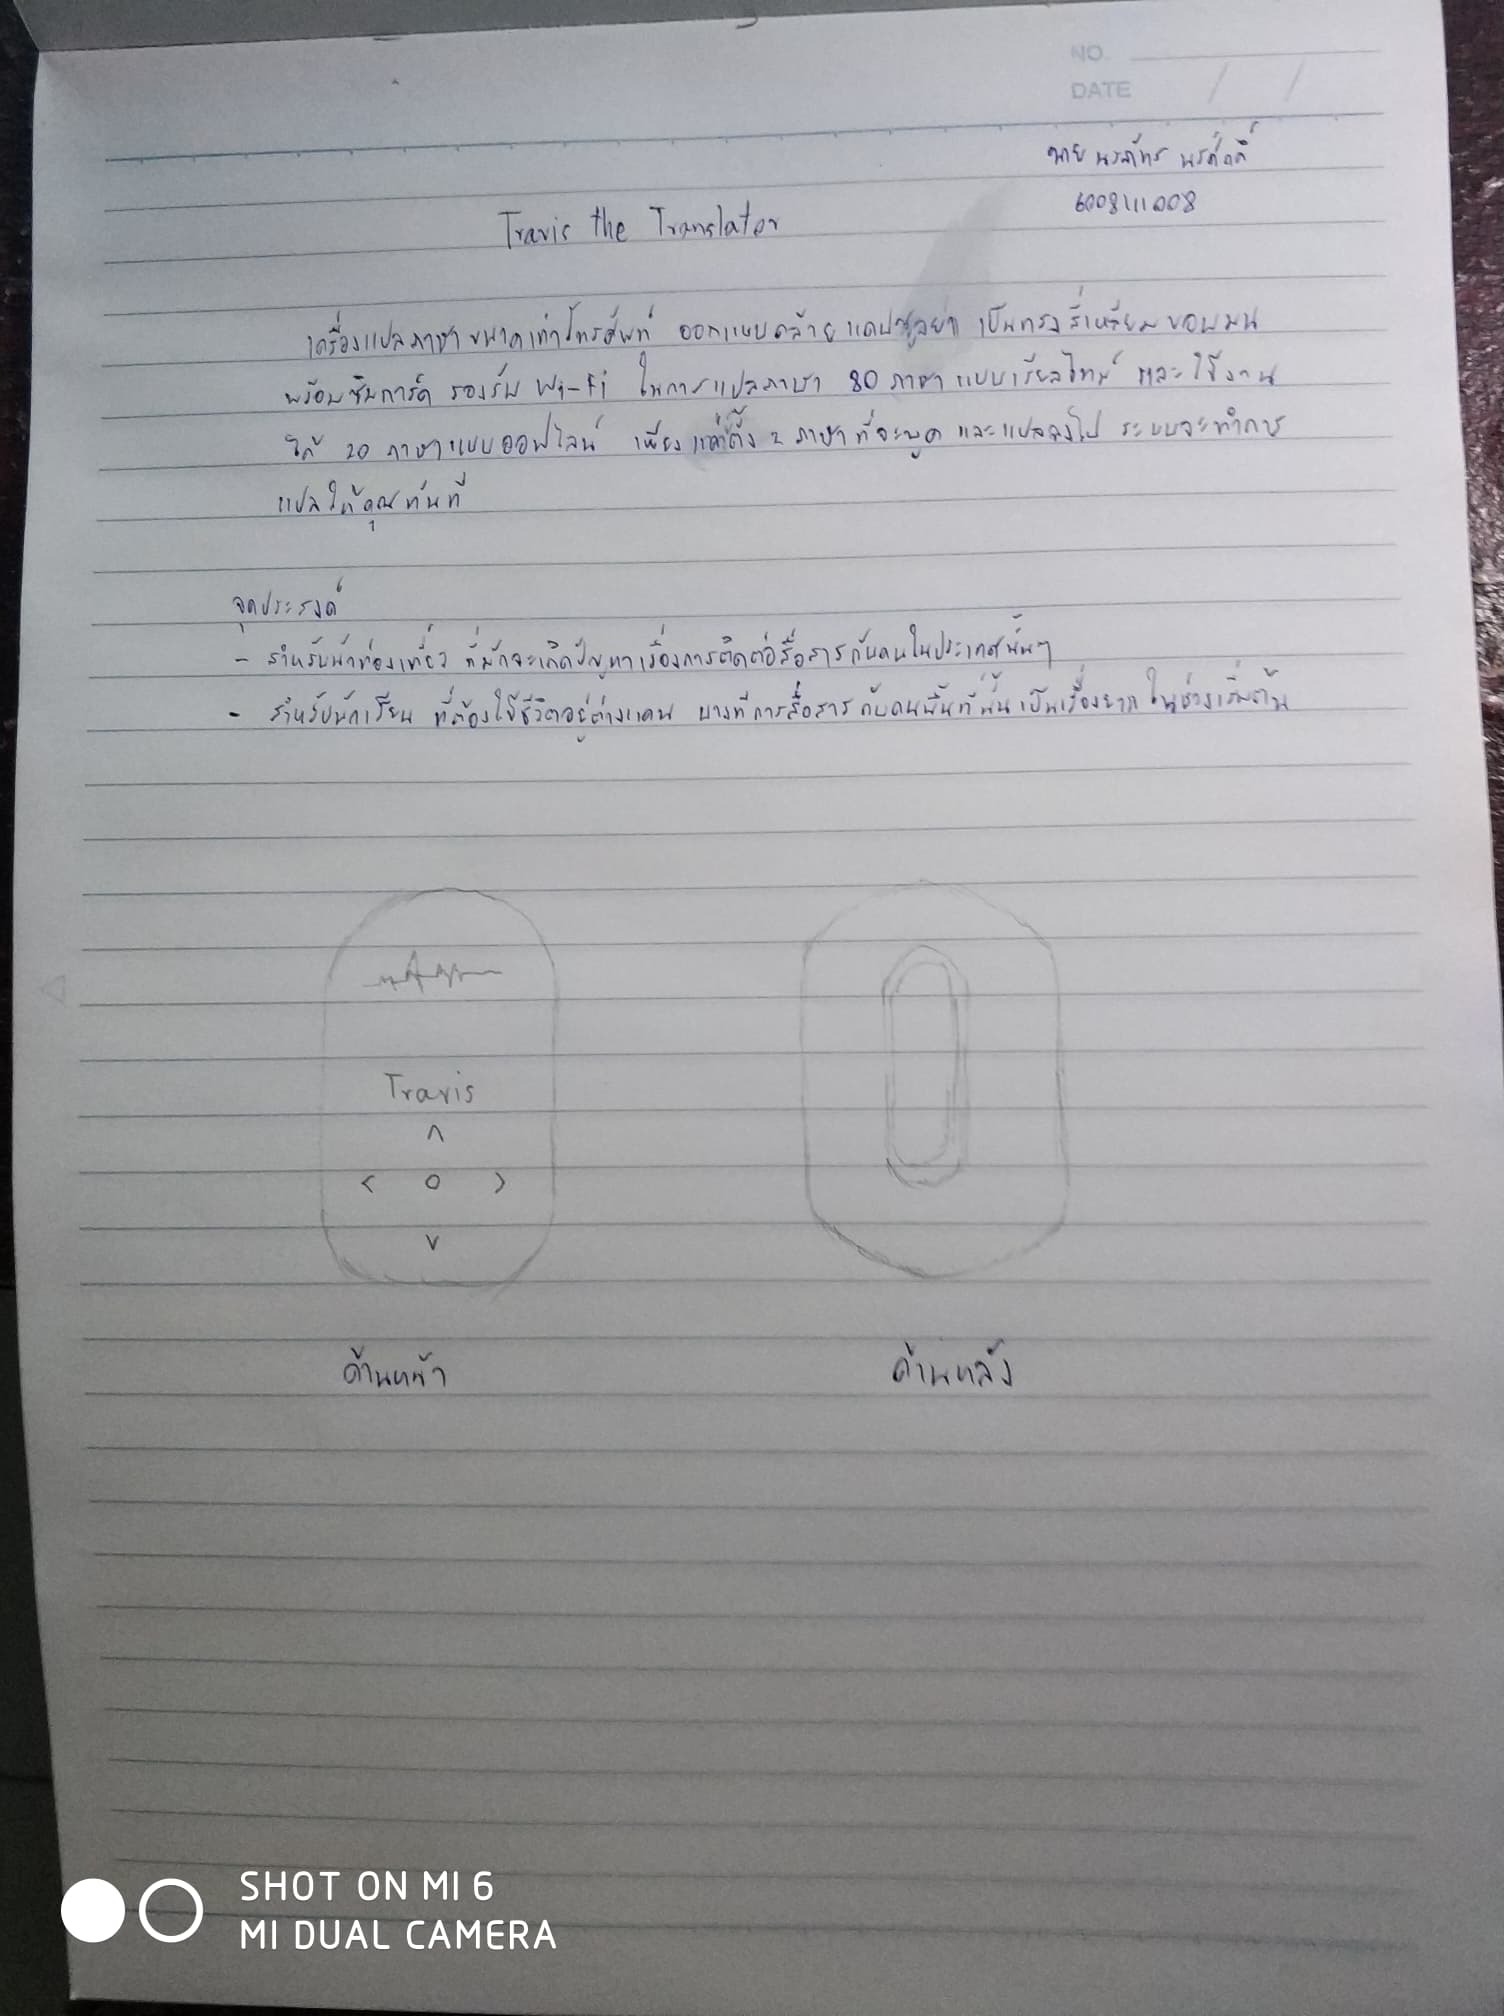 NO.
DATE / /
นาย นรภัทร นรศักดิ์
6008111008
Travis the Translator
เครื่องแปลภาษาขนาดเท่าโทรศัพท์ ออกแบบคล้ายแคปซูลยา เป็นทรงสี่เหลี่ยมขอบมน
พร้อมซิมการ์ด รองรับ Wi-Fi ในการแปลภาษา 80 ภาษาแบบเรียลไทม์ และใช้งาน
ได้ 20 ภาษาแบบออฟไลน์ เพียงแค่ตั้ง 2 ภาษาที่จะพูด และแปลลงไป ระบบจะทำการ
แปลให้คุณทันที
จุดประสงค์
- สำหรับนักท่องเที่ยว ที่มักจะเกิดปัญหาเรื่องการติดต่อสื่อสารกับคนในประเทศนั้นๆ
- สำหรับนักเรียน ที่ต้องใช้ชีวิตอยู่ต่างแดน บางทีการสื่อสารกับคนพื้นที่นั้นเป็นเรื่องยากในช่วงเริ่มต้น
Travis
ด้านหน้า
ด้านหลัง
SHOT ON MI 6
MI DUAL CAMERA